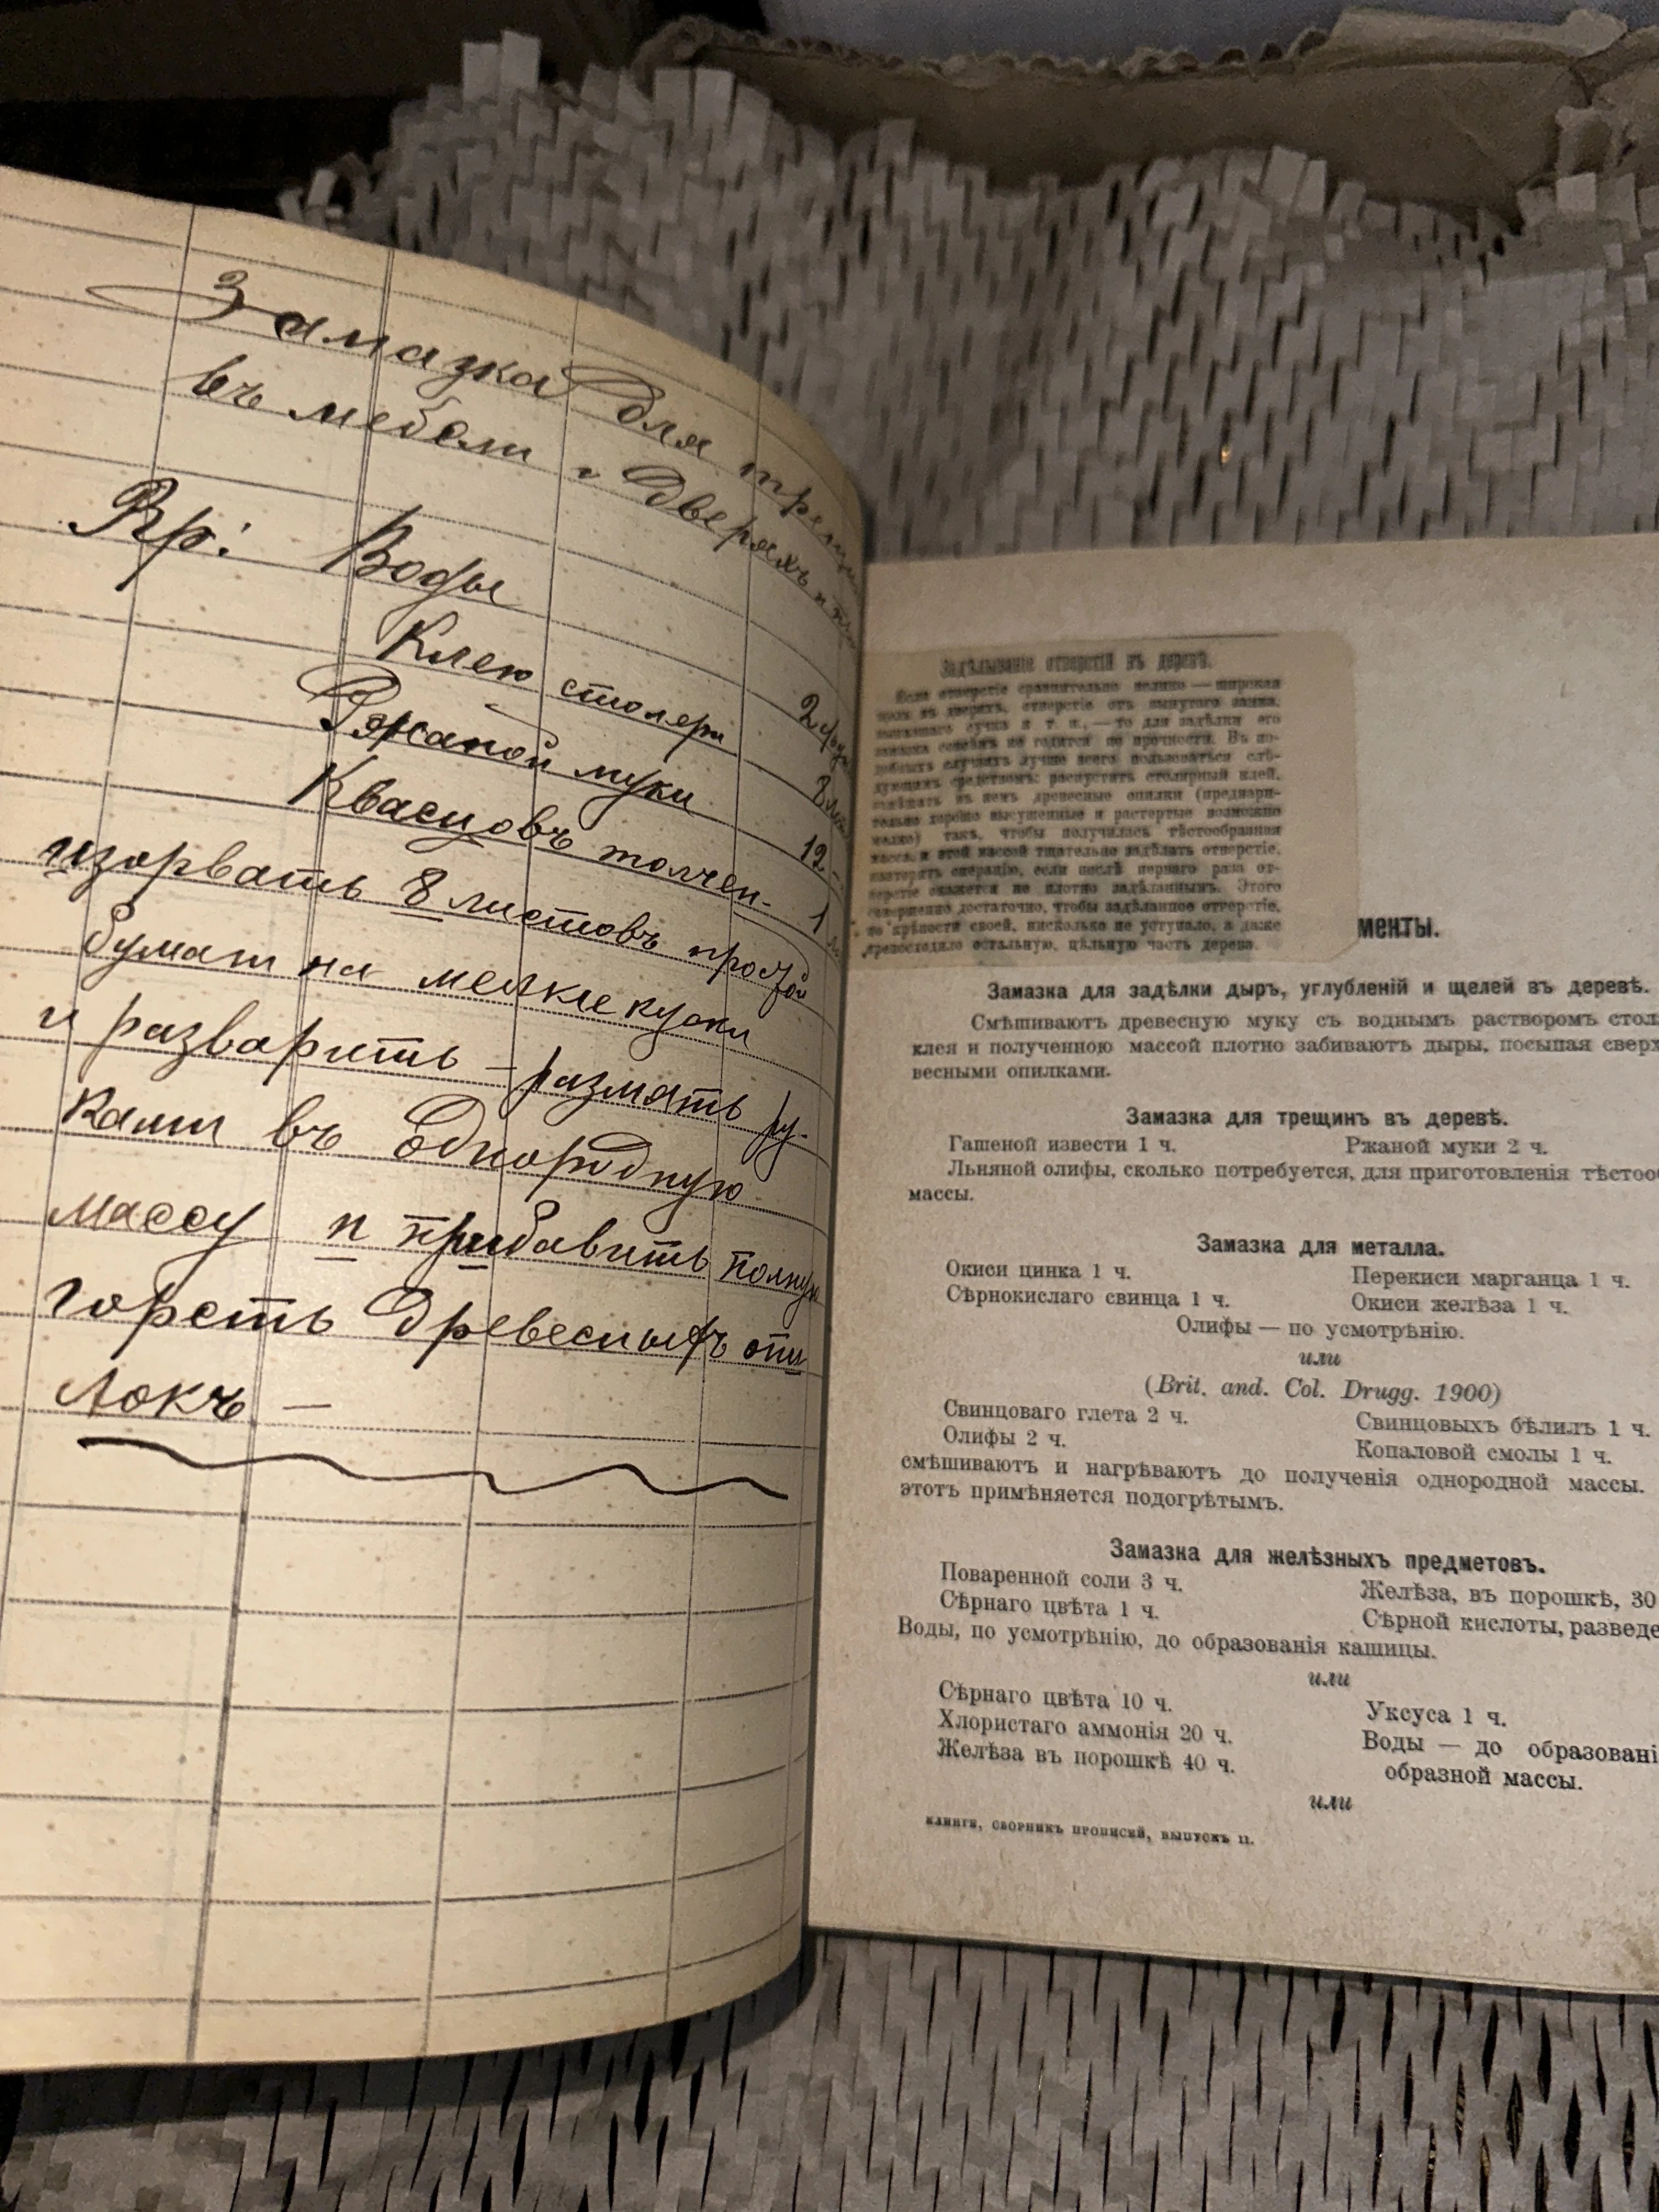 Замазка для трещин
въ мебели и дверяхъ и
Rp: Воды 2 фун
Клею столярн 8 лот
Ржаной муки 12 -
Квасцовъ толчен. 1
изорвать 8 листовъ простой
бумаги на мелкие куски
и разварить - размять ру-
ками въ однородную
массу и прибавить полную
горсть древесныхъ опи
локъ —
Задѣлываніе отверстій въ деревѣ.
Если отверстіе сравнительно велико — широкая
щель въ дверяхъ, отверстіе отъ вынутого замка,
выпавшаго сучка и т. п., — то для задѣлки его
замазка совсѣмъ не годится по прочности. Въ по-
добныхъ случаяхъ лучше всего пользоваться слѣ-
дующимъ средствомъ: распустить столярный клей,
смѣшать въ немъ древесные опилки (предвари-
тельно хорошо высушенные и растертые возможно
мелко) такъ, чтобы получилась тѣстообразная
масса, и этой массой тщательно задѣлать отверстіе,
повторять операцію, если послѣ перваго раза от-
верстіе окажется не плотно задѣланнымъ. Этого
совершенно достаточно, чтобы задѣланное отверстіе,
по крѣпости своей, нисколько не уступало, а даже
превосходило остальную, цѣльную часть дерева.
менты.
Замазка для задѣлки дыръ, углубленій и щелей въ деревѣ.
Смѣшиваютъ древесную муку съ воднымъ растворомъ стол
клея и полученною массой плотно забиваютъ дыры, посыпая сверх
весными опилками.
Замазка для трещинъ въ деревѣ.
Гашеной извести 1 ч. Ржаной муки 2 ч.
Льняной олифы, сколько потребуется, для приготовленія тѣстоо
массы.
Замазка для металла.
Окиси цинка 1 ч. Перекиси марганца 1 ч.
Сѣрнокислаго свинца 1 ч. Окиси желѣза 1 ч.
Олифы — по усмотрѣнію.
или
(Brit. and. Col. Drugg. 1900)
Свинцоваго глета 2 ч. Свинцовыхъ бѣлилъ 1 ч.
Олифы 2 ч. Копаловой смолы 1 ч.
смѣшиваютъ и нагрѣваютъ до полученія однородной массы.
этотъ примѣняется подогрѣтымъ.
Замазка для желѣзныхъ предметовъ.
Поваренной соли 3 ч. Желѣза, въ порошкѣ, 30
Сѣрнаго цвѣта 1 ч. Сѣрной кислоты, разведе
Воды, по усмотрѣнію, до образованія кашицы.
или
Сѣрнаго цвѣта 10 ч. Уксуса 1 ч.
Хлористаго аммонія 20 ч. Воды — до образовані
Желѣза въ порошкѣ 40 ч. образной массы.
или
КЛИНГЕ, СБОРНИКЪ ПРОПИСЕЙ, ВЫПУСКЪ II.